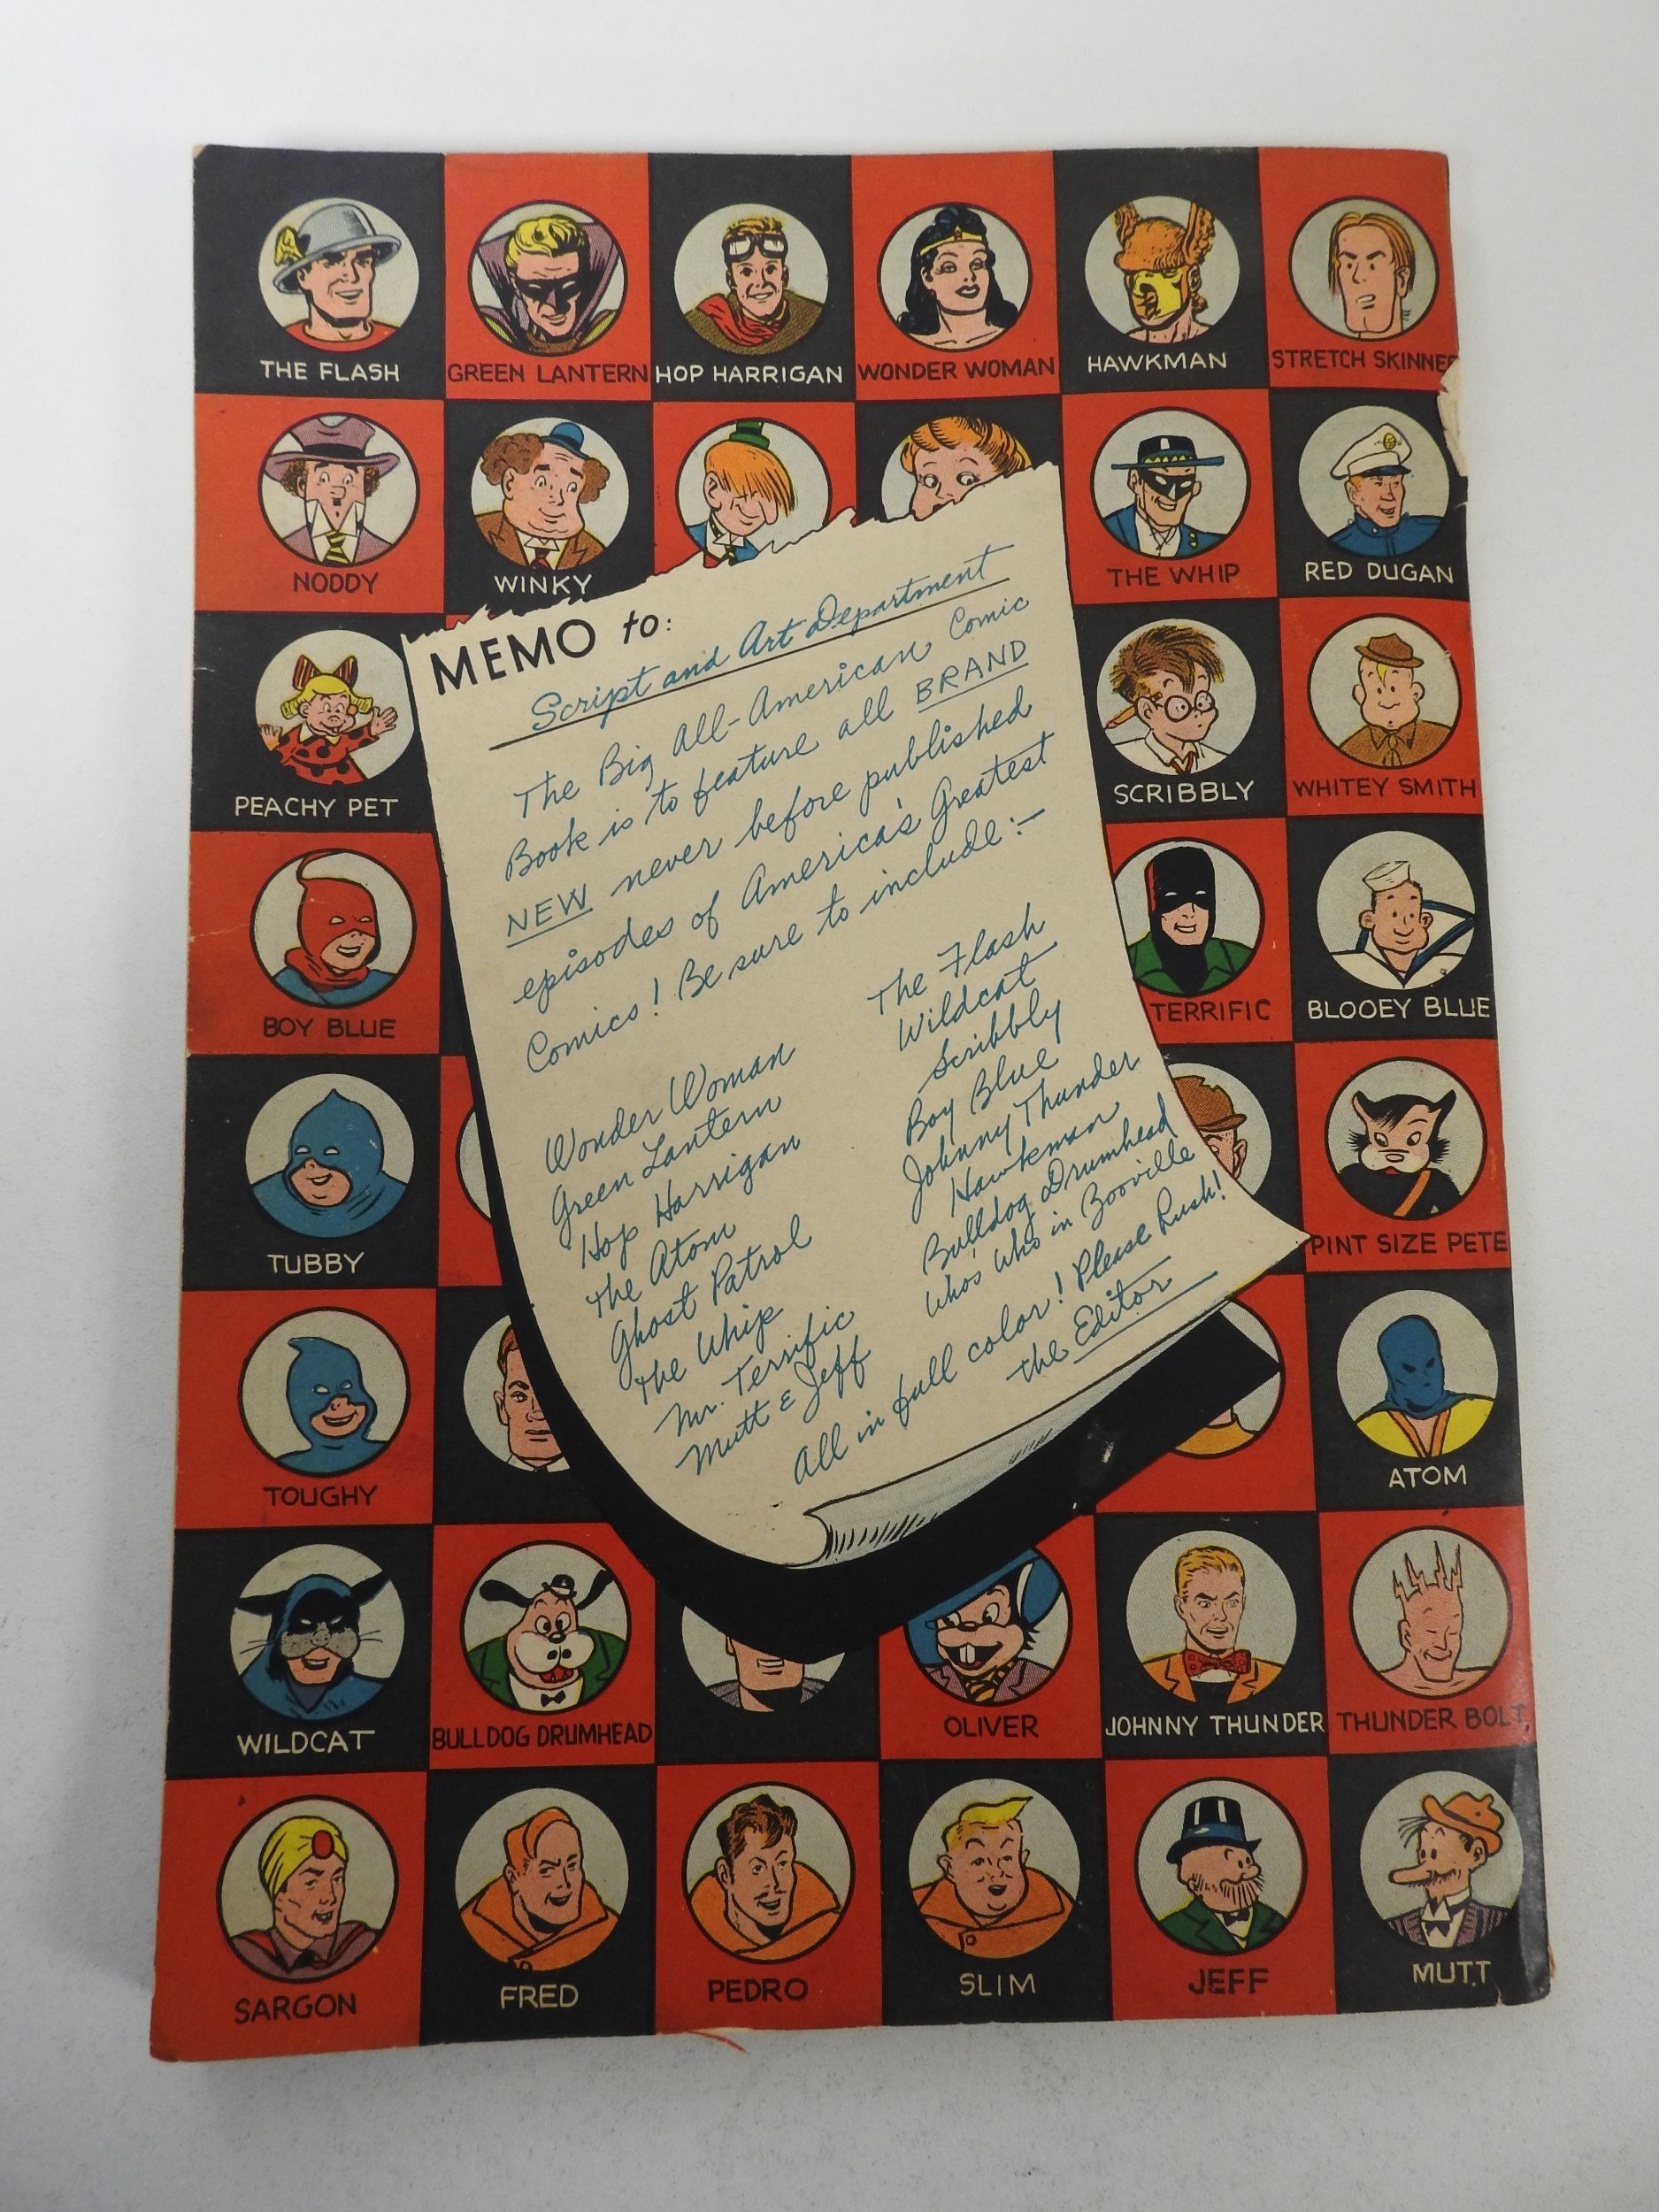 THE FLASH GREEN LANTERN HOP HARRIGAN WONDER WOMAN HAWKMAN STRETCH SKINNER
NODDY WINKY THE WHIP RED DUGAN
MEMO to:
Script and Art Department
The Big All-American Comic
Book is to feature all BRAND
NEW never before published
episodes of America's Greatest
Comics! Be sure to include:-
Wonder Woman
Green Lantern
Hop Harrigan
The Atom
Ghost Patrol
The Whip
Mr. Terrific
Mutt & Jeff
The Flash
Wildcat
Scribbly
Boy Blue
Johnny Thunder
Hawkman
Bulldog Drumhead
Who's Who in Booville
All in full color! Please Rush!
The Editor
PEACHY PET SCRIBBLY WHITEY SMITH
BOY BLUE TERRIFIC BLOOEY BLUE
TUBBY PINT SIZE PETE
TOUGHY ATOM
WILDCAT BULLDOG DRUMHEAD OLIVER JOHNNY THUNDER THUNDER BOLT
SARGON FRED PEDRO SLIM JEFF MUTT